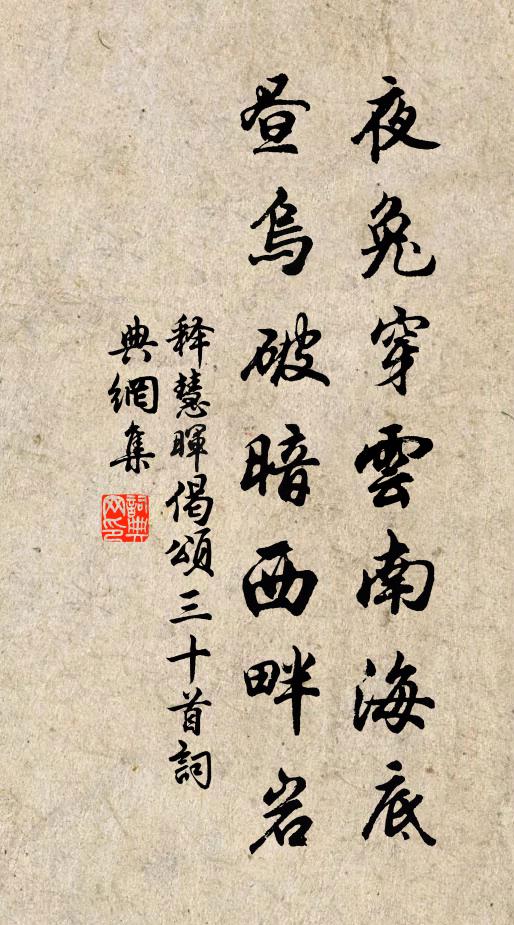 夜兔穿雲南海底
昼烏破暗西畔岩
释慧暉偈頌三十首詞
典網集
詞典网印